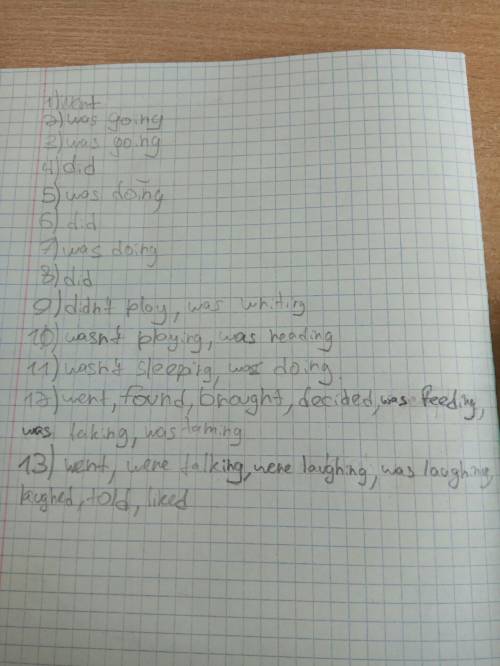 1) went
2) was going
3) was going
4) did
5) was doing
6) did
7) was doing
8) did
9) didn't play, was writing
10) wasn't playing, was reading
11) wasn't sleeping, was doing
12) went, found, brought, decided, was feeding,
was taking, was taming
13) went, were talking, were laughing, was laughing,
laughed, told, liked